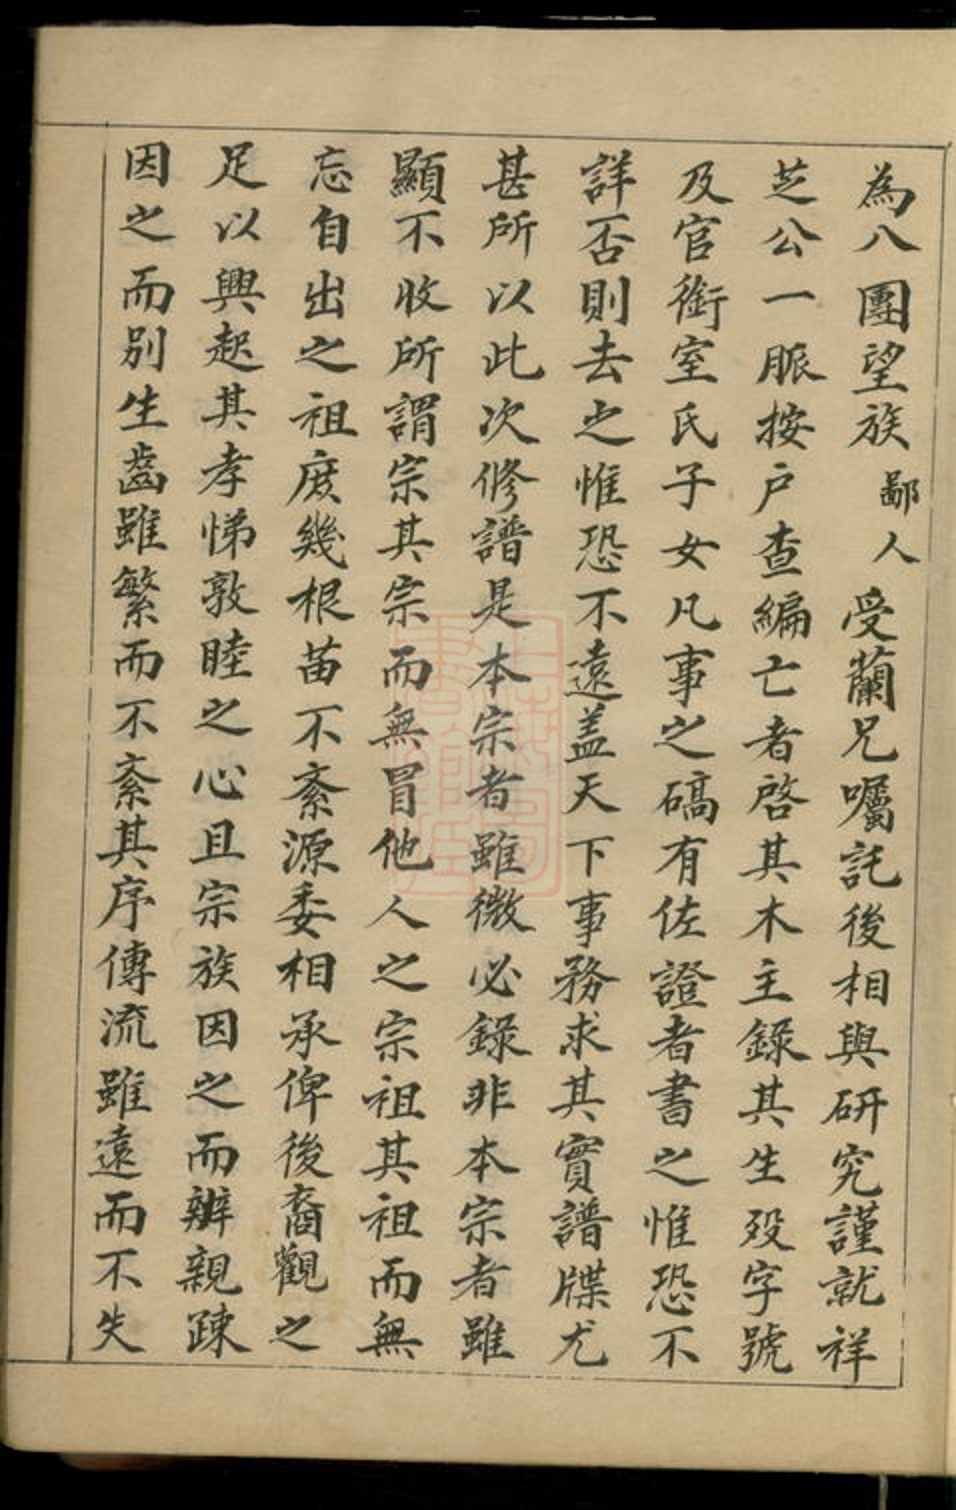 為八團望族鄙人受蘭兄囑託後相與研究謹就祥
芝公一脈按户查編亡者啓其木主錄其生歿字號
及官銜室氏子女凡事之碻有佐證者書之惟恐不
詳否則去之惟恐不遠盖天下事務求其實譜牒尤
甚所以此次修譜是本宗者雖微必錄非本宗者雖
顯不收所謂宗其宗而無冒他人之宗祖其祖而無
忘自出之祖庶幾根苗不紊源委相承俾後裔觀之
足以興起其孝悌敦睦之心且宗族因之而辨親疎
因之而別生齒雖繁而不紊其序傳流雖遠而不失